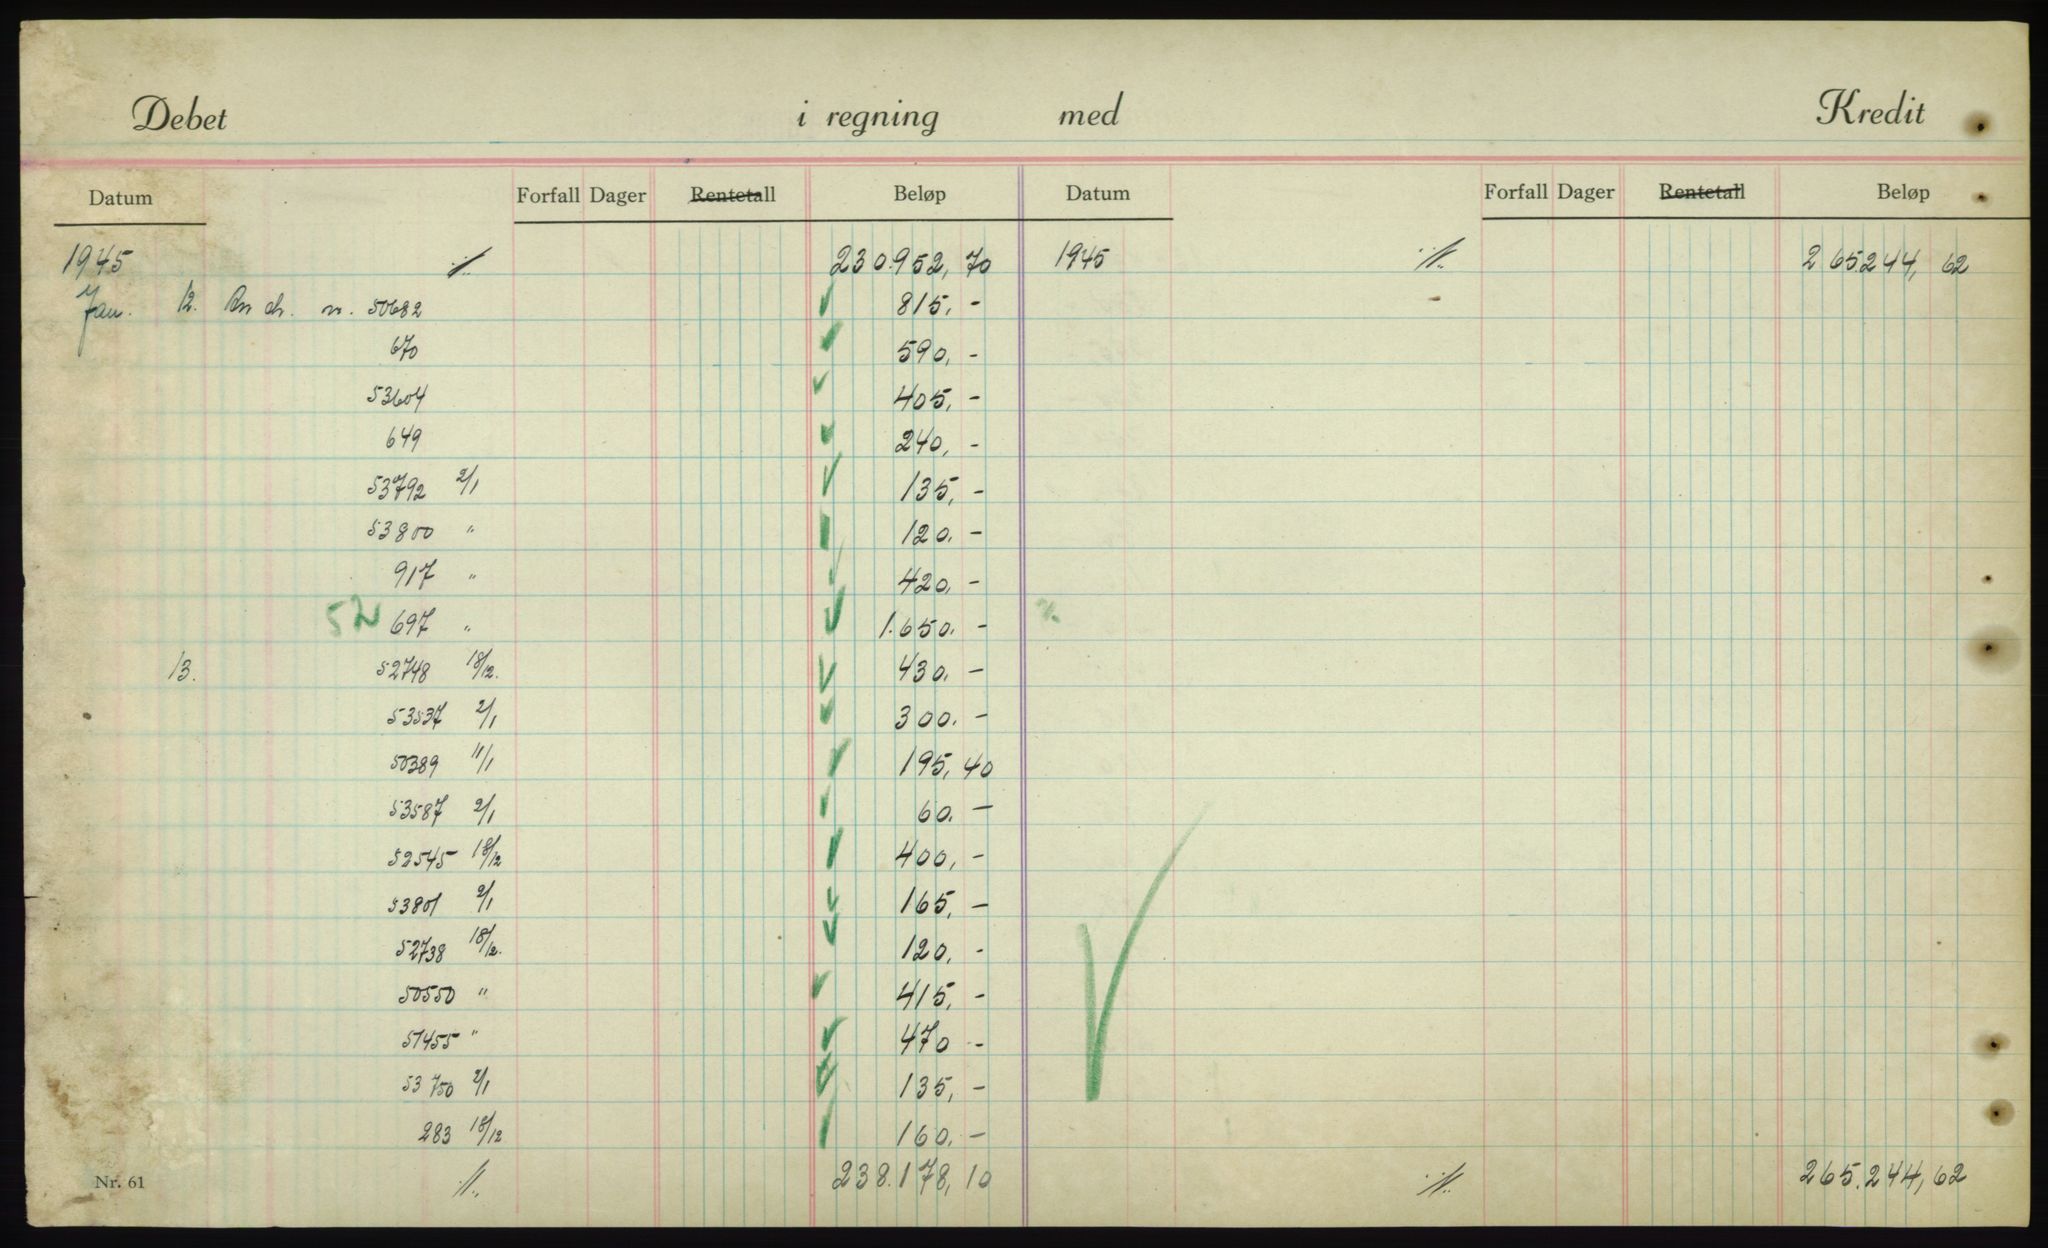 Debet i regning med Kredit
Datum Forfall Dager Rentetall Beløp Datum Forfall Dager Rentetall Beløp
1945 ·//. 230.952,70 1945 ·//. 265.244,62
Jan. 12. nr. 50682 815,-
670 590,-
53604 405,-
649 240,-
53792 2/1 135,-
53800 " 120,-
917 " 420,-
52 697 " 1.650,-
13. 52748 18/12. 430,-
53537 2/1 300,-
50389 11/1 195,40
53587 2/1 60,-
52545 18/12 400,-
53801 2/1 165,-
52738 18/12. 120,-
50550 " 415,-
51455 " 470 -
53750 2/1 135,-
283 18/12 160,-
Nr. 61 ·//. 238.178,10 ·//. 265.244,62